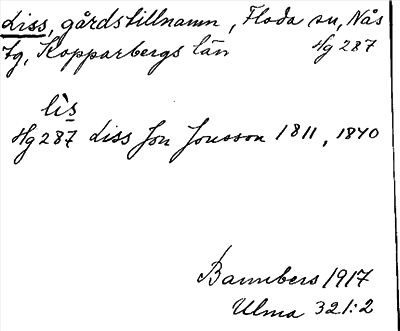 Liss, gårdstillnamn, Floda sn, Nås
fg, Kopparbergs län Hg 287
lìs
Hg 287 Liss Jon Jonsson 1811, 1840
Bannbers 1917
Ulma 321:2